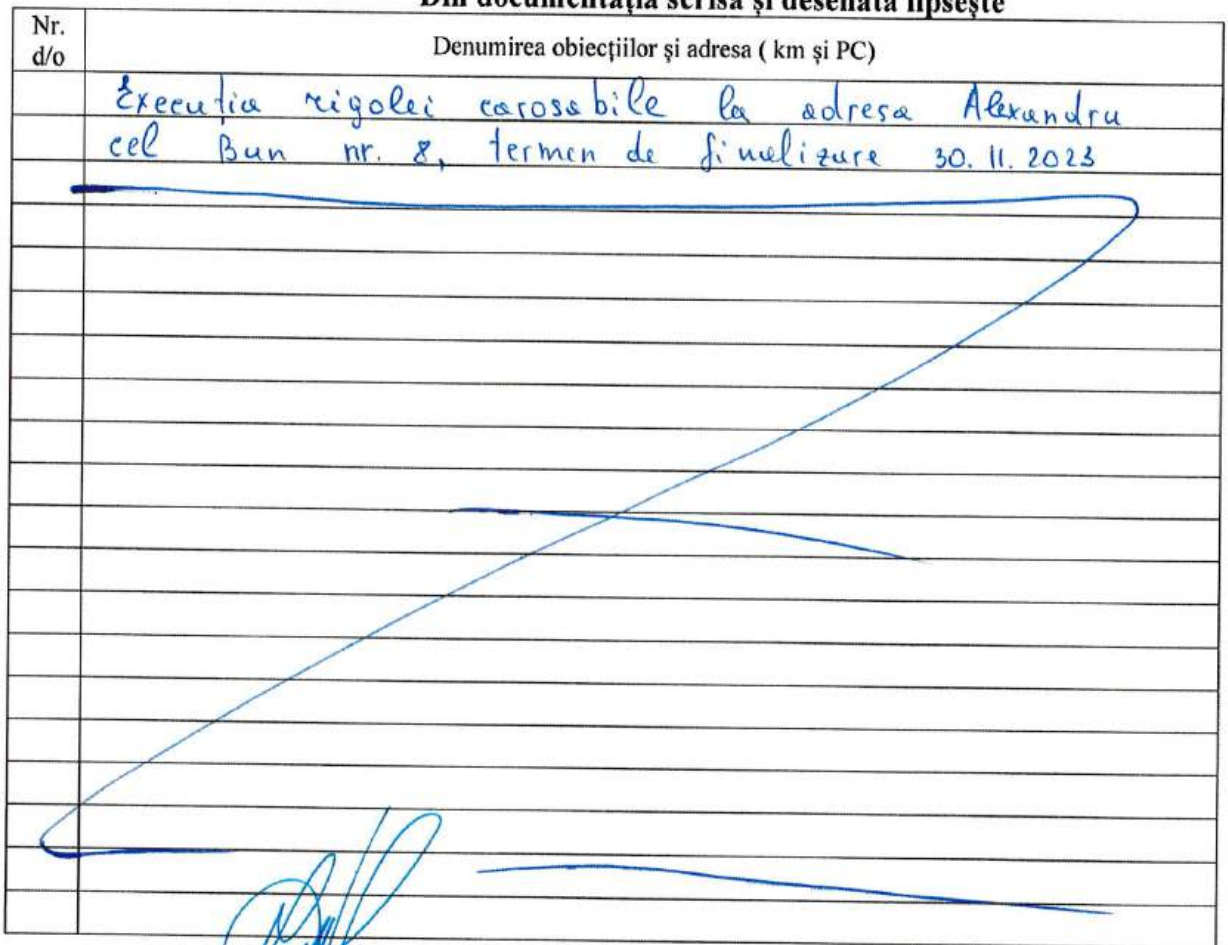 Din documentația scrisă și desenată lipsește
Nr.
d/o
Denumirea obiecțiilor și adresa ( km și PC)
Execuția rigolei carosabile la adresa Alexandru
cel Bun nr. 8, termen de finalizare 30. 11. 2023